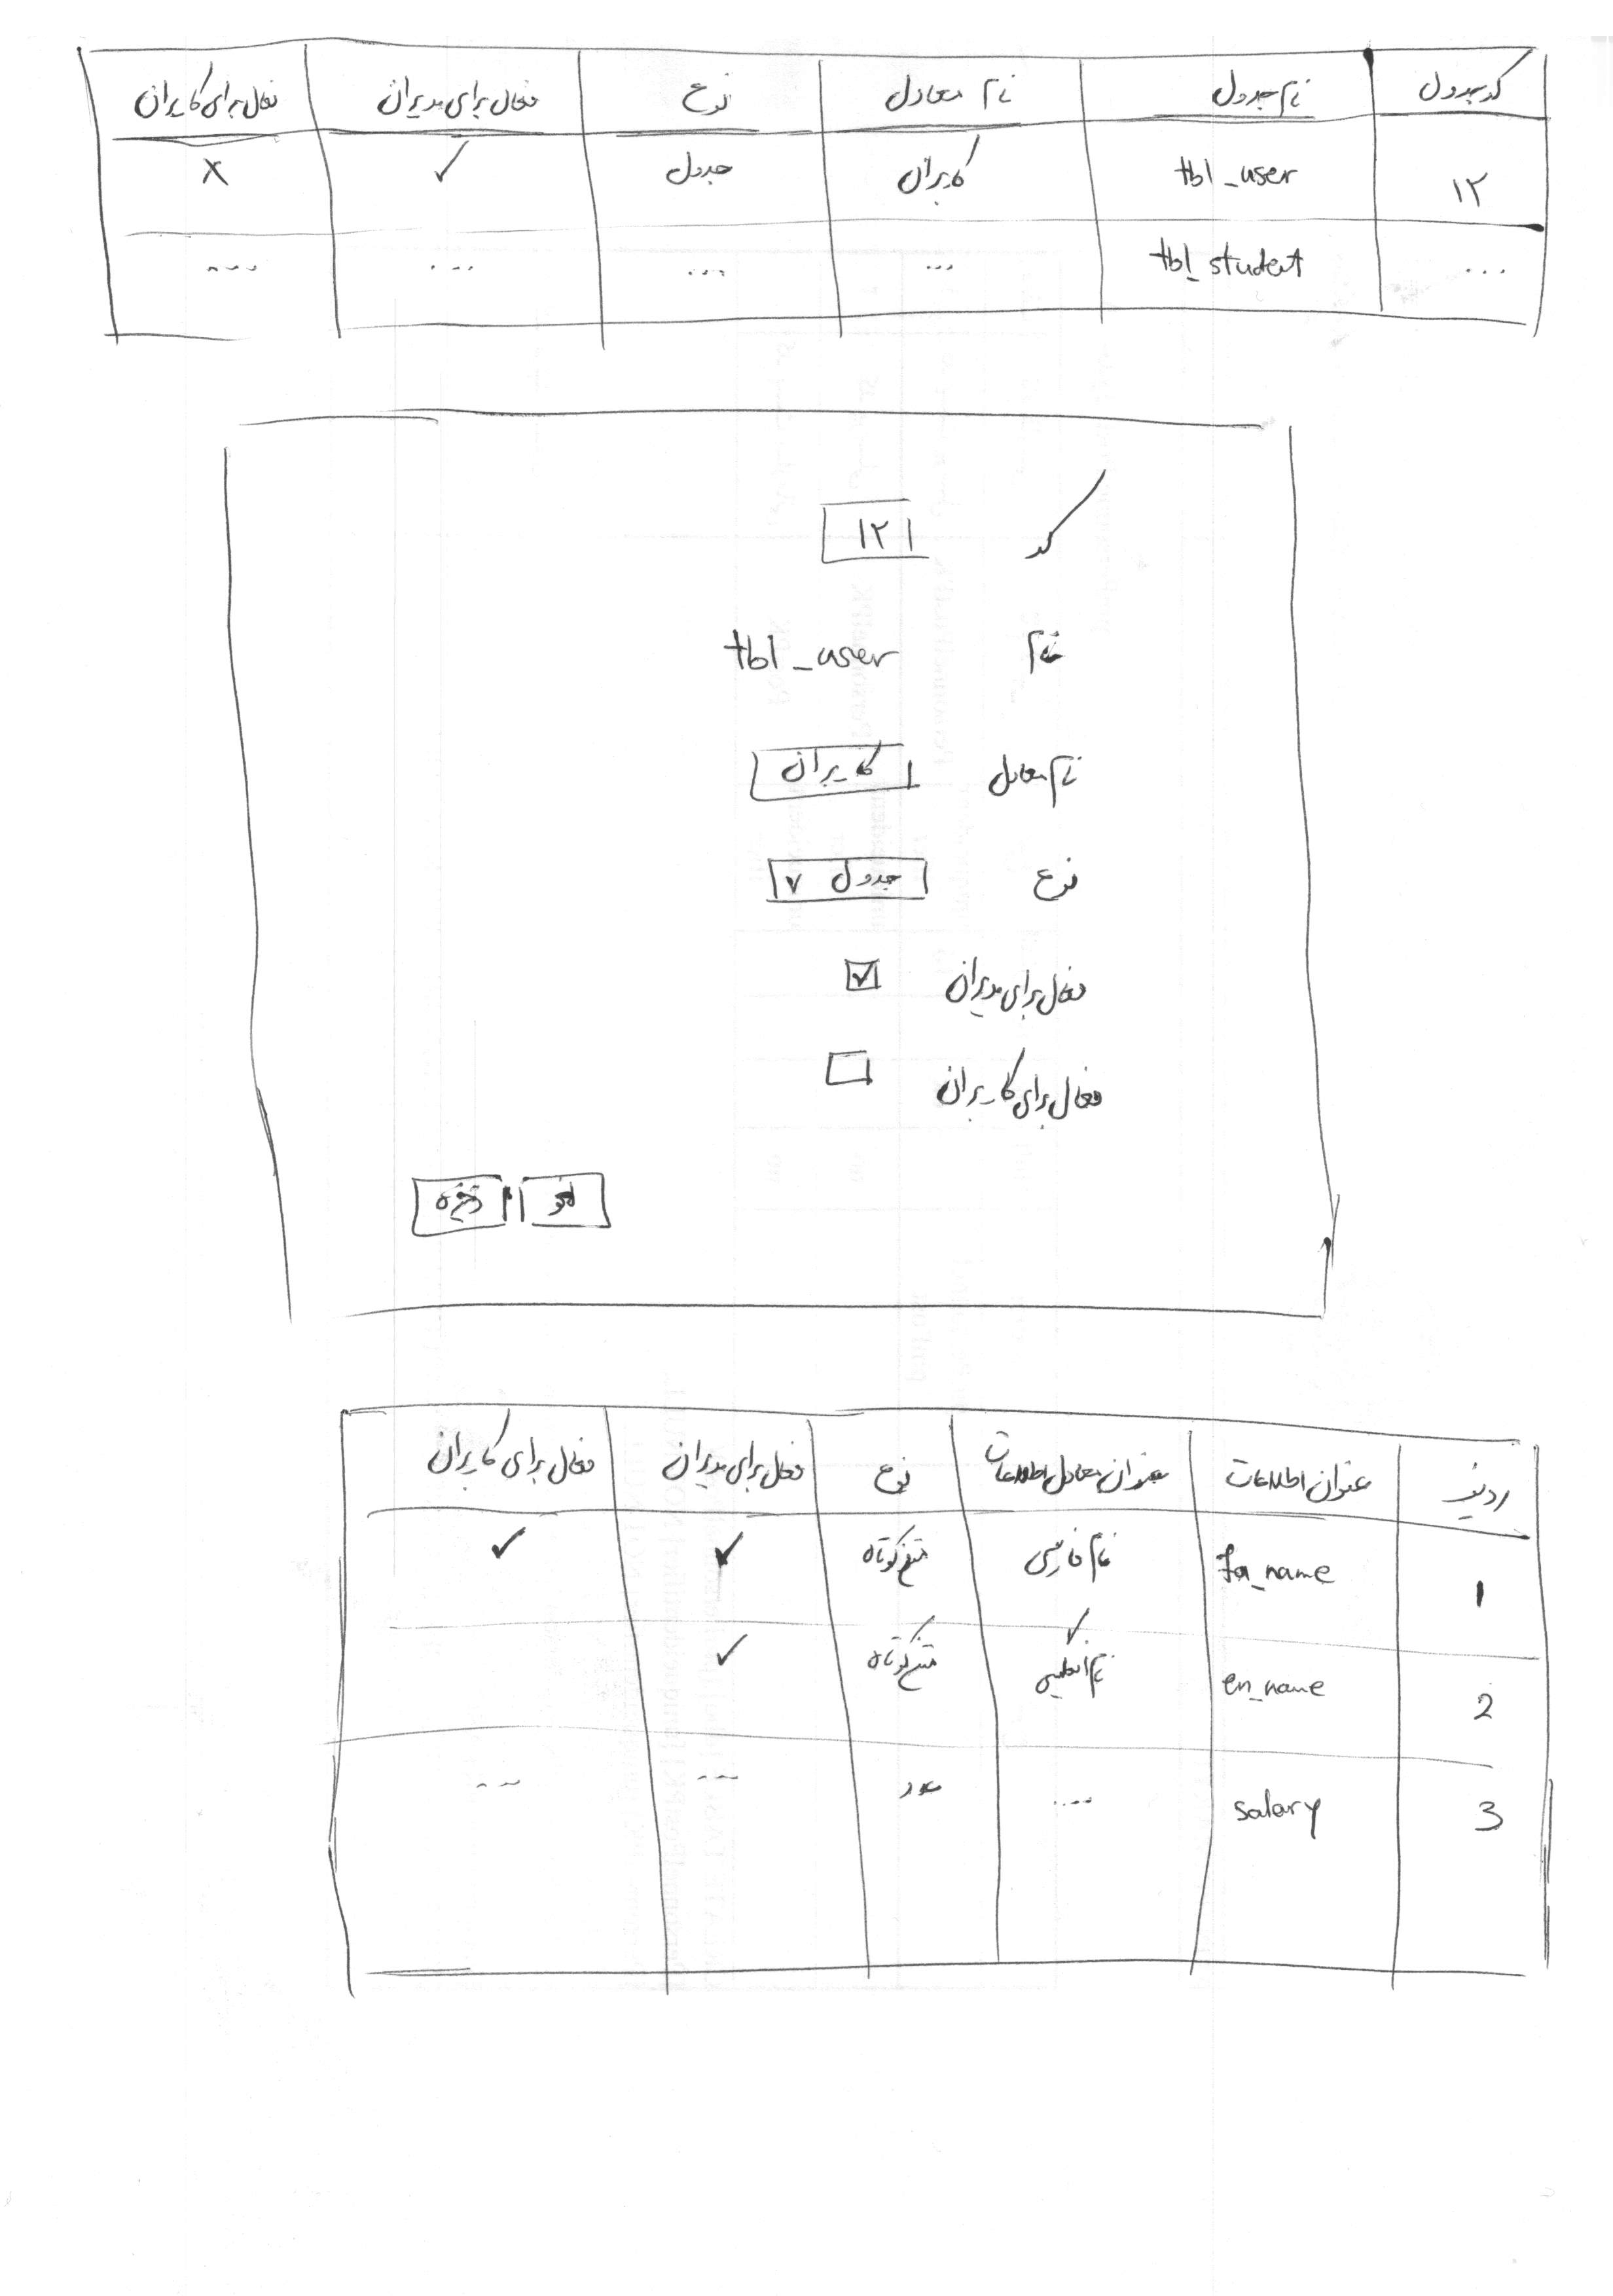 کد جدول نام جدول نام معادل نوع فعال برای مدیران فعال برای کاربران
۱۲ tbl_user کاربران جدول ✓ x
... tbl_student ... ... ... ...
کد ۱۲
نام tbl_user
نام معادل کاربران
نوع جدول v
فعال برای مدیران ✓
فعال برای کاربران
لغو ذخیره
ردیف عنوان اطلاعات عنوان معادل اطلاعات نوع فعال برای مدیران فعال برای کاربران
1 fa_name نام فارسی متن کوتاه ✓ ✓
2 en_name نام انگلیسی متن کوتاه ✓
3 salary .... عدد --- ---